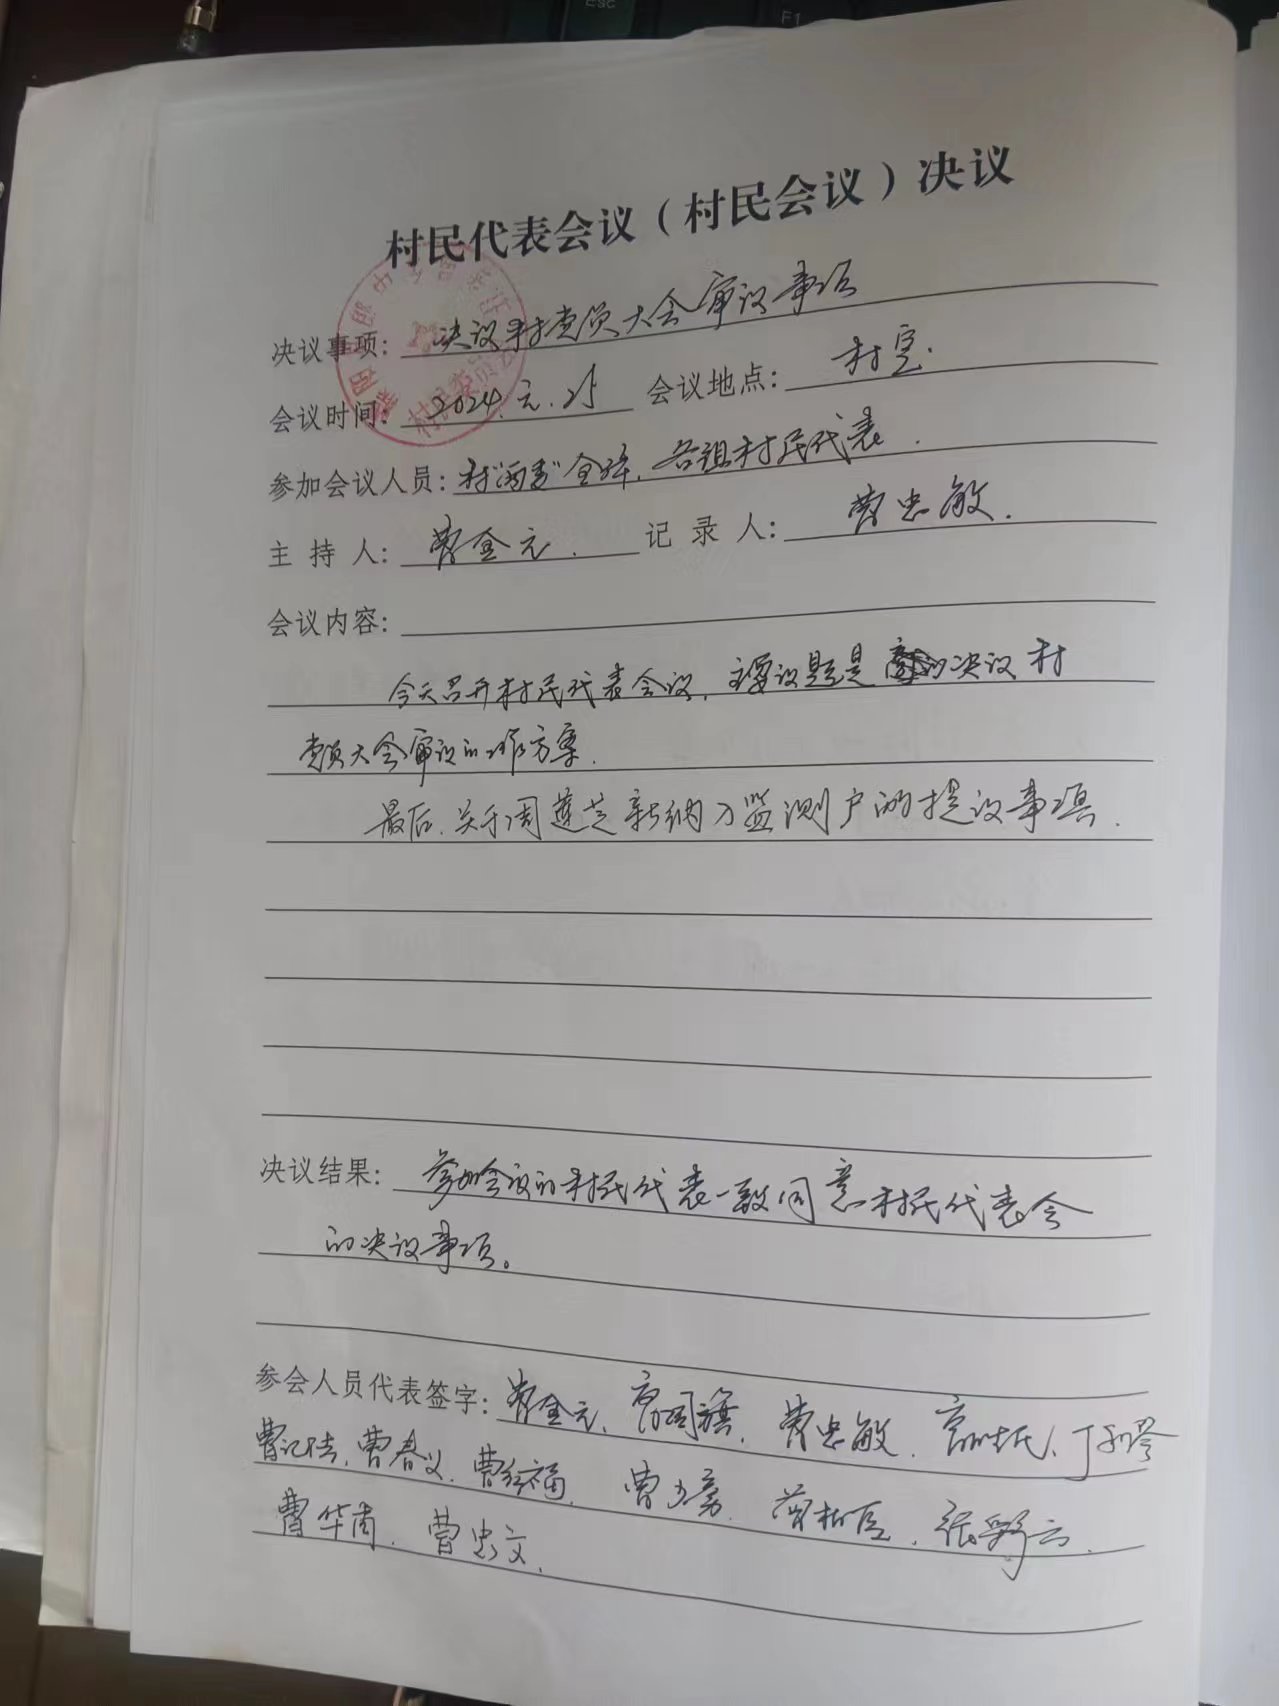 村民代表会议（村民会议）决议
决议事项：决议村党员大会审议事项
会议时间：2024.元.25 会议地点：村室.
参加会议人员：村“两委”全体，各组村民代表.
主持人：曹金元. 记录人：曹忠敏.
会议内容：
今天召开村民代表会议，主要议题是决议村
党员大会审议的工作方案.
最后，关于周莲芝新纳入监测户的提议事项.
决议结果：参加会议的村民代表一致同意村民代表会
的决议事项。
参会人员代表签字：曹金元、曹忠敏.
曹春义. 曹红福.
曹华甫. 曹忠文.
Esc
F1